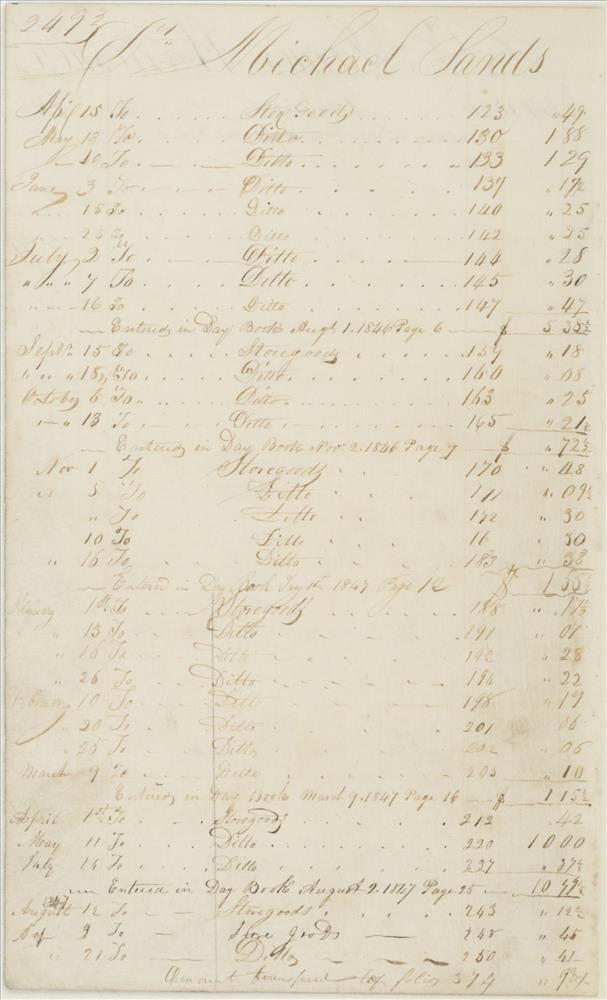 2493
Dr Michael Sands
Apl 15 To Store Goods 123 " 49
May 12 To Ditto 130 1 88
" 10 To Ditto 133 1 29
June 3 To Ditto 137
" 15 To Ditto 140 " 25
" 25 To Ditto 142 " 25
July 2 To Ditto 144 " 28
" " 7 To Ditto 145 " 30
" 16 To Ditto 147 " 47
Entered in Day Book Augt 1. 1846 Page 6 $ 5 35½
Sept. 15 To Storegoods 159 " 18
" " " 18 To Ditto 160 " 08
October 6 To Ditto 163 " 25
" 13 To Ditto 165 " 21½
Entered in Day Book Nov. 2. 1846 Page 9 $ " 72½
Nov 1 To Storegoods 170 " 48
" 5 To Ditto " 09½
" To Ditto 172 " 30
10 To Ditto 30
" 16 To Ditto 183 " 38
Entered in Day Book 1847 Page 12 $
January 1st To Storegoods 188 " 17½
" 13 To Ditto 191 " 07
" 16 To Ditto 192 " 28
" 26 To Ditto 194 " 22
February 10 To Ditto 198 " 19
" 20 To Ditto 201 06
" 26 To Ditto 202 " 06
March 9 To Ditto 205 " 10
Entered in Day Book March 9. 1847 Page 16 $ 1 15½
April 1st To Storegoods 212 42
May 11 To Ditto 220 10 00
July 14 To Ditto 227 " 37½
Entered in Day Book August 2. 1847 Page 25
August 12 To Storegoods 243 " 12½
9 To Store goods 248 " 45
" 21 To Ditto 250 " 41
Amount transfered to folio 374